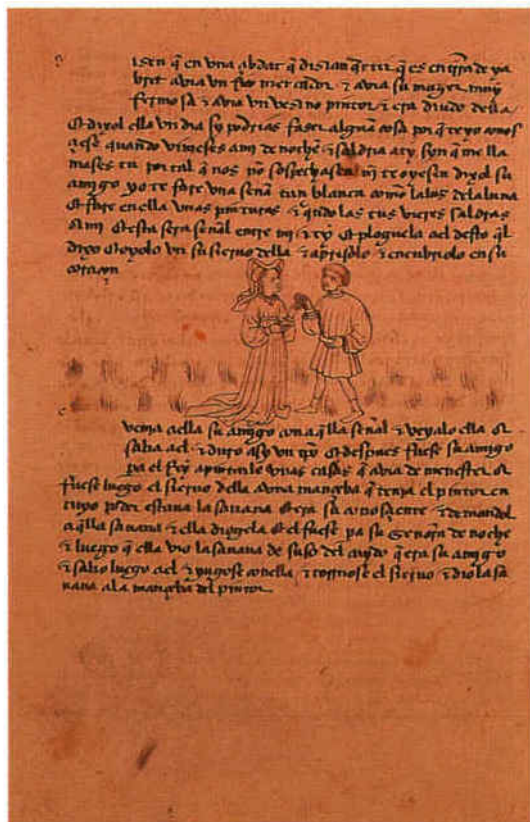 isen q̃ en una çibdat q̃ disian q̃ es en trr̃a de
avia un mercador & avia su muger muy
fermosa & avia un vesino pintor & era della
Et dixol ella un dia sy podrias faser alguna cosa por q̃ te yo
quando vinieses a mi de noche & saldria a ty syn q̃ me lla
mases tu por tal q̃ nos non sospechasen nj̃ te oyesen dixol su
amigo yo te fare una tan blanca como la lus de la luna
& fare en ella unas pinturas & q̃ndo las tus vieres saldras
a mi & esta sera señal entre mi & ty & ploguela a el desto q̃l
dixo & oyolo un su siervo della & & encubriolo en su
coraçon
venia a ella su amigo con aq̃lla señal & veyalo ella &
salia a el & duro asy un & despues fuese su amigo
pa el Rey unas casas q̃ avia de menester &
fuese luego el siervo della a una mançeba q̃ tenia el pintor en
cuyo poder estava la savana & era su conosçiente & demandol
aq̃lla savana & ella diogela & el fuese pa su señora de noche
& luego q̃ ella vio la savana de suso del cuydo q̃ era su amigo
& salio luego a el & yugose con ella & tornose el siervo & dio la sa
vana a la mançeba del pintor